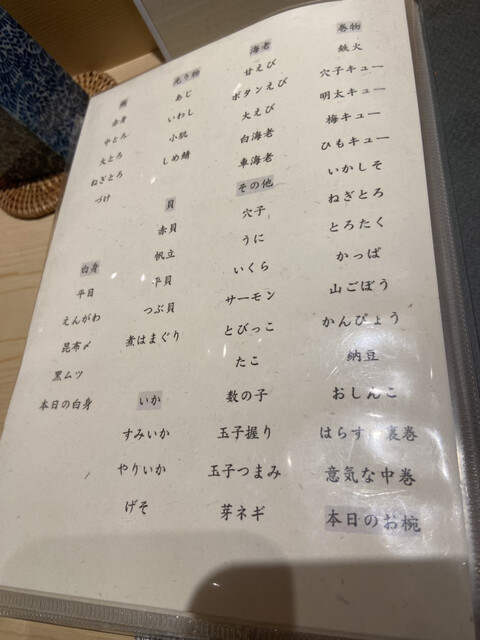 巻物
鉄火
穴子キュー
明太キュー
梅キュー
ひもキュー
いかしそ
ねぎとろ
とろたく
かっぱ
山ごぼう
かんぴょう
納豆
おしんこ
はらす 裏巻
意気な中巻
本日のお椀
海老
甘えび
ボタンえび
大えび
白海老
車海老
その他
穴子
うに
いくら
サーモン
とびっこ
たこ
数の子
玉子握り
玉子つまみ
芽ネギ
光り物
あじ
いわし
小肌
しめ鯖
貝
赤貝
帆立
下貝
つぶ貝
煮はまぐり
いか
すみいか
やりいか
げそ
鮪
赤身
中とろ
大とろ
ねぎとろ
づけ
白身
平目
えんがわ
昆布〆
黒ムツ
本日の白身